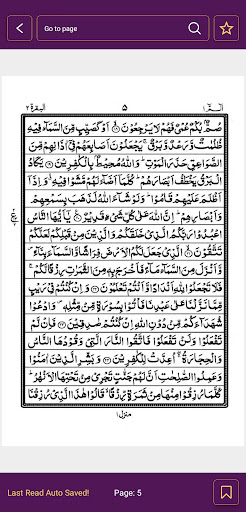 Go to page
البقرة ٢
٥
الٓمّٓ ١
صُمٌّۢ بُكْمٌ عُمْیٌ فَهُمْ لَا یَرْجِعُوْنَ ۙ﴿۱۸﴾ اَوْ كَصَیِّبٍ مِّنَ السَّمَآءِ فِیْهِ
ظُلُمٰتٌ وَّرَعْدٌ وَّبَرْقٌ ۚ یَجْعَلُوْنَ اَصَابِعَهُمْ فِیْۤ اٰذَانِهِمْ مِّنَ
الصَّوَاعِقِ حَذَرَ الْمَوْتِ ؕ وَاللّٰهُ مُحِیْطٌۢ بِالْكٰفِرِیْنَ ﴿۱۹﴾ یَكَادُ
الْبَرْقُ یَخْطَفُ اَبْصَارَهُمْ ؕ كُلَّمَاۤ اَضَآءَ لَهُمْ مَّشَوْا فِیْهِ ۙۗ وَاِذَاۤ
اَظْلَمَ عَلَیْهِمْ قَامُوْا ؕ وَلَوْ شَآءَ اللّٰهُ لَذَهَبَ بِسَمْعِهِمْ
وَاَبْصَارِهِمْ ؕ اِنَّ اللّٰهَ عَلٰی كُلِّ شَیْءٍ قَدِیْرٌ ﴿۲۰﴾ یٰۤاَیُّهَا النَّاسُ
اعْبُدُوْا رَبَّكُمُ الَّذِیْ خَلَقَكُمْ وَالَّذِیْنَ مِنْ قَبْلِكُمْ لَعَلَّكُمْ
تَتَّقُوْنَ ﴿۲۱﴾ الَّذِیْ جَعَلَ لَكُمُ الْاَرْضَ فِرَاشًا وَّالسَّمَآءَ بِنَآءً ۪
وَّاَنْزَلَ مِنَ السَّمَآءِ مَآءً فَاَخْرَجَ بِهٖ مِنَ الثَّمَرٰتِ رِزْقًا لَّكُمْ ۚ
فَلَا تَجْعَلُوْا لِلّٰهِ اَنْدَادًا وَّاَنْتُمْ تَعْلَمُوْنَ ﴿۲۲﴾ وَاِنْ كُنْتُمْ فِیْ رَیْبٍ
مِّمَّا نَزَّلْنَا عَلٰی عَبْدِنَا فَاْتُوْا بِسُوْرَةٍ مِّنْ مِّثْلِهٖ ۪ وَادْعُوْا
شُهَدَآءَكُمْ مِّنْ دُوْنِ اللّٰهِ اِنْ كُنْتُمْ صٰدِقِیْنَ ﴿۲۳﴾ فَاِنْ لَّمْ
تَفْعَلُوْا وَلَنْ تَفْعَلُوْا فَاتَّقُوا النَّارَ الَّتِیْ وَقُوْدُهَا النَّاسُ
وَالْحِجَارَةُ ۖۚ اُعِدَّتْ لِلْكٰفِرِیْنَ ﴿۲۴﴾ وَبَشِّرِ الَّذِیْنَ اٰمَنُوْا
وَعَمِلُوا الصّٰلِحٰتِ اَنَّ لَهُمْ جَنّٰتٍ تَجْرِیْ مِنْ تَحْتِهَا الْاَنْهٰرُ ؕ
كُلَّمَا رُزِقُوْا مِنْهَا مِنْ ثَمَرَةٍ رِّزْقًا ۙ قَالُوْا هٰذَا الَّذِیْ رُزِقْنَا
منزل ١
Last Read Auto Saved!
Page: 5